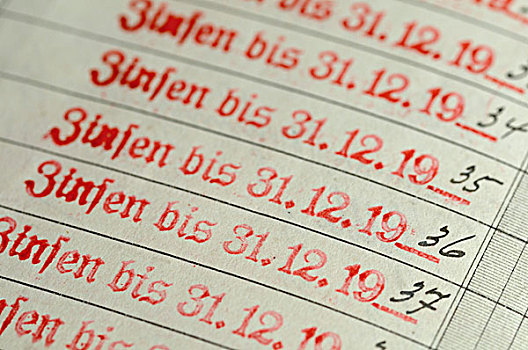 Zinsen bis 31.12.19
Zinsen bis 31.12.1934
Zinsen bis 31.12.1935
Zinsen bis 31.12.1936
Zinsen bis 31.12.1937
insen bis 31.12.19